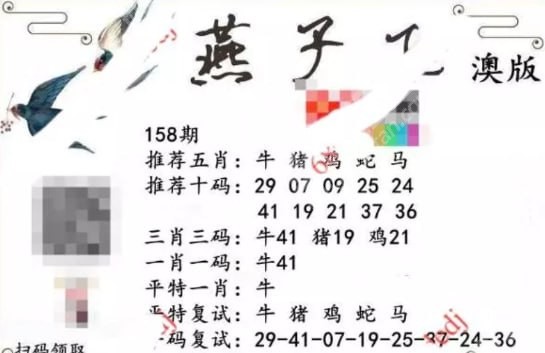 燕子
澳版
158期
推荐五肖：牛 猪 鸡 蛇 马
推荐十码：29 07 09 25 24
41 19 21 37 36
三肖三码：牛41 猪19 鸡21
一肖一码：牛41
平特一肖：牛
平特复试：牛 猪 鸡 蛇 马
码复试：29-41-07-19-25-37-24-36
扫码领取